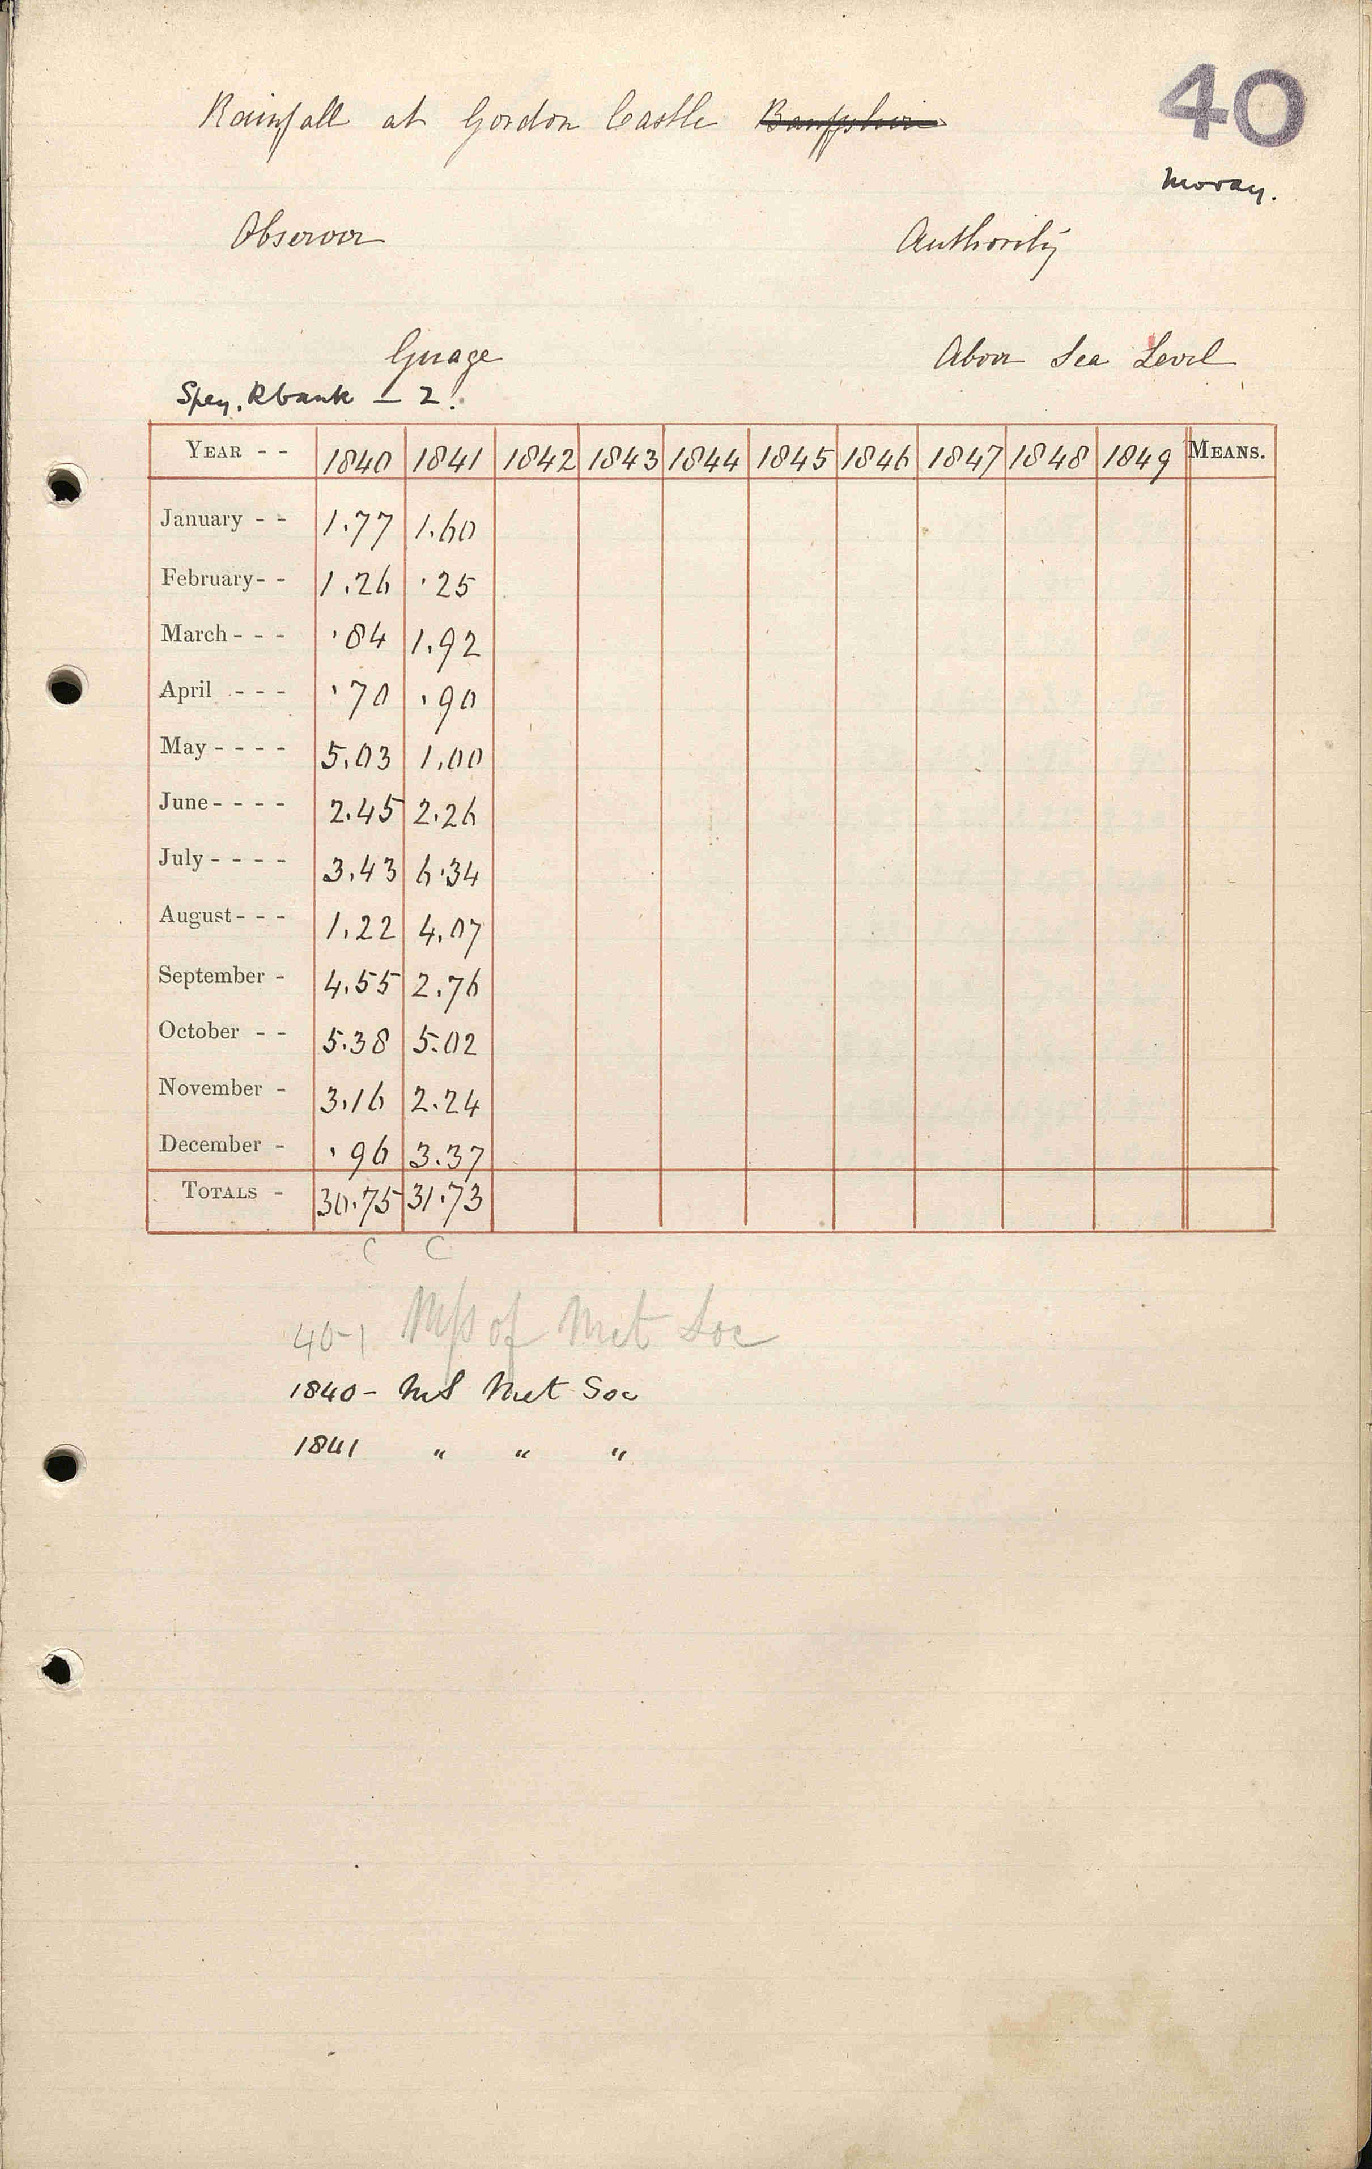 40
Rainfall at Gordon Castle Banffshire
Moray.
Observer Authority
Guage Above Sea Level
Spey. R bank – 2.
YEAR - - 1840 1841 1842 1843 1844 1845 1846 1847 1848 1849 MEANS.
January - - 1.77 1.60
February - - 1.26 .25
March - - - .84 1.92
April - - - .70 .90
May - - - - 5.03 1.00
June - - - - 2.45 2.26
July - - - - 3.43 6.34
August - - - 1.22 4.07
September - 4.55 2.76
October - - 5.38 5.02
November - 3.16 2.24
December - .96 3.37
TOTALS - 30.75 31.73
C C
40-1 Mss of Met Soc
1840 – MS Met Soc
1841 " " "